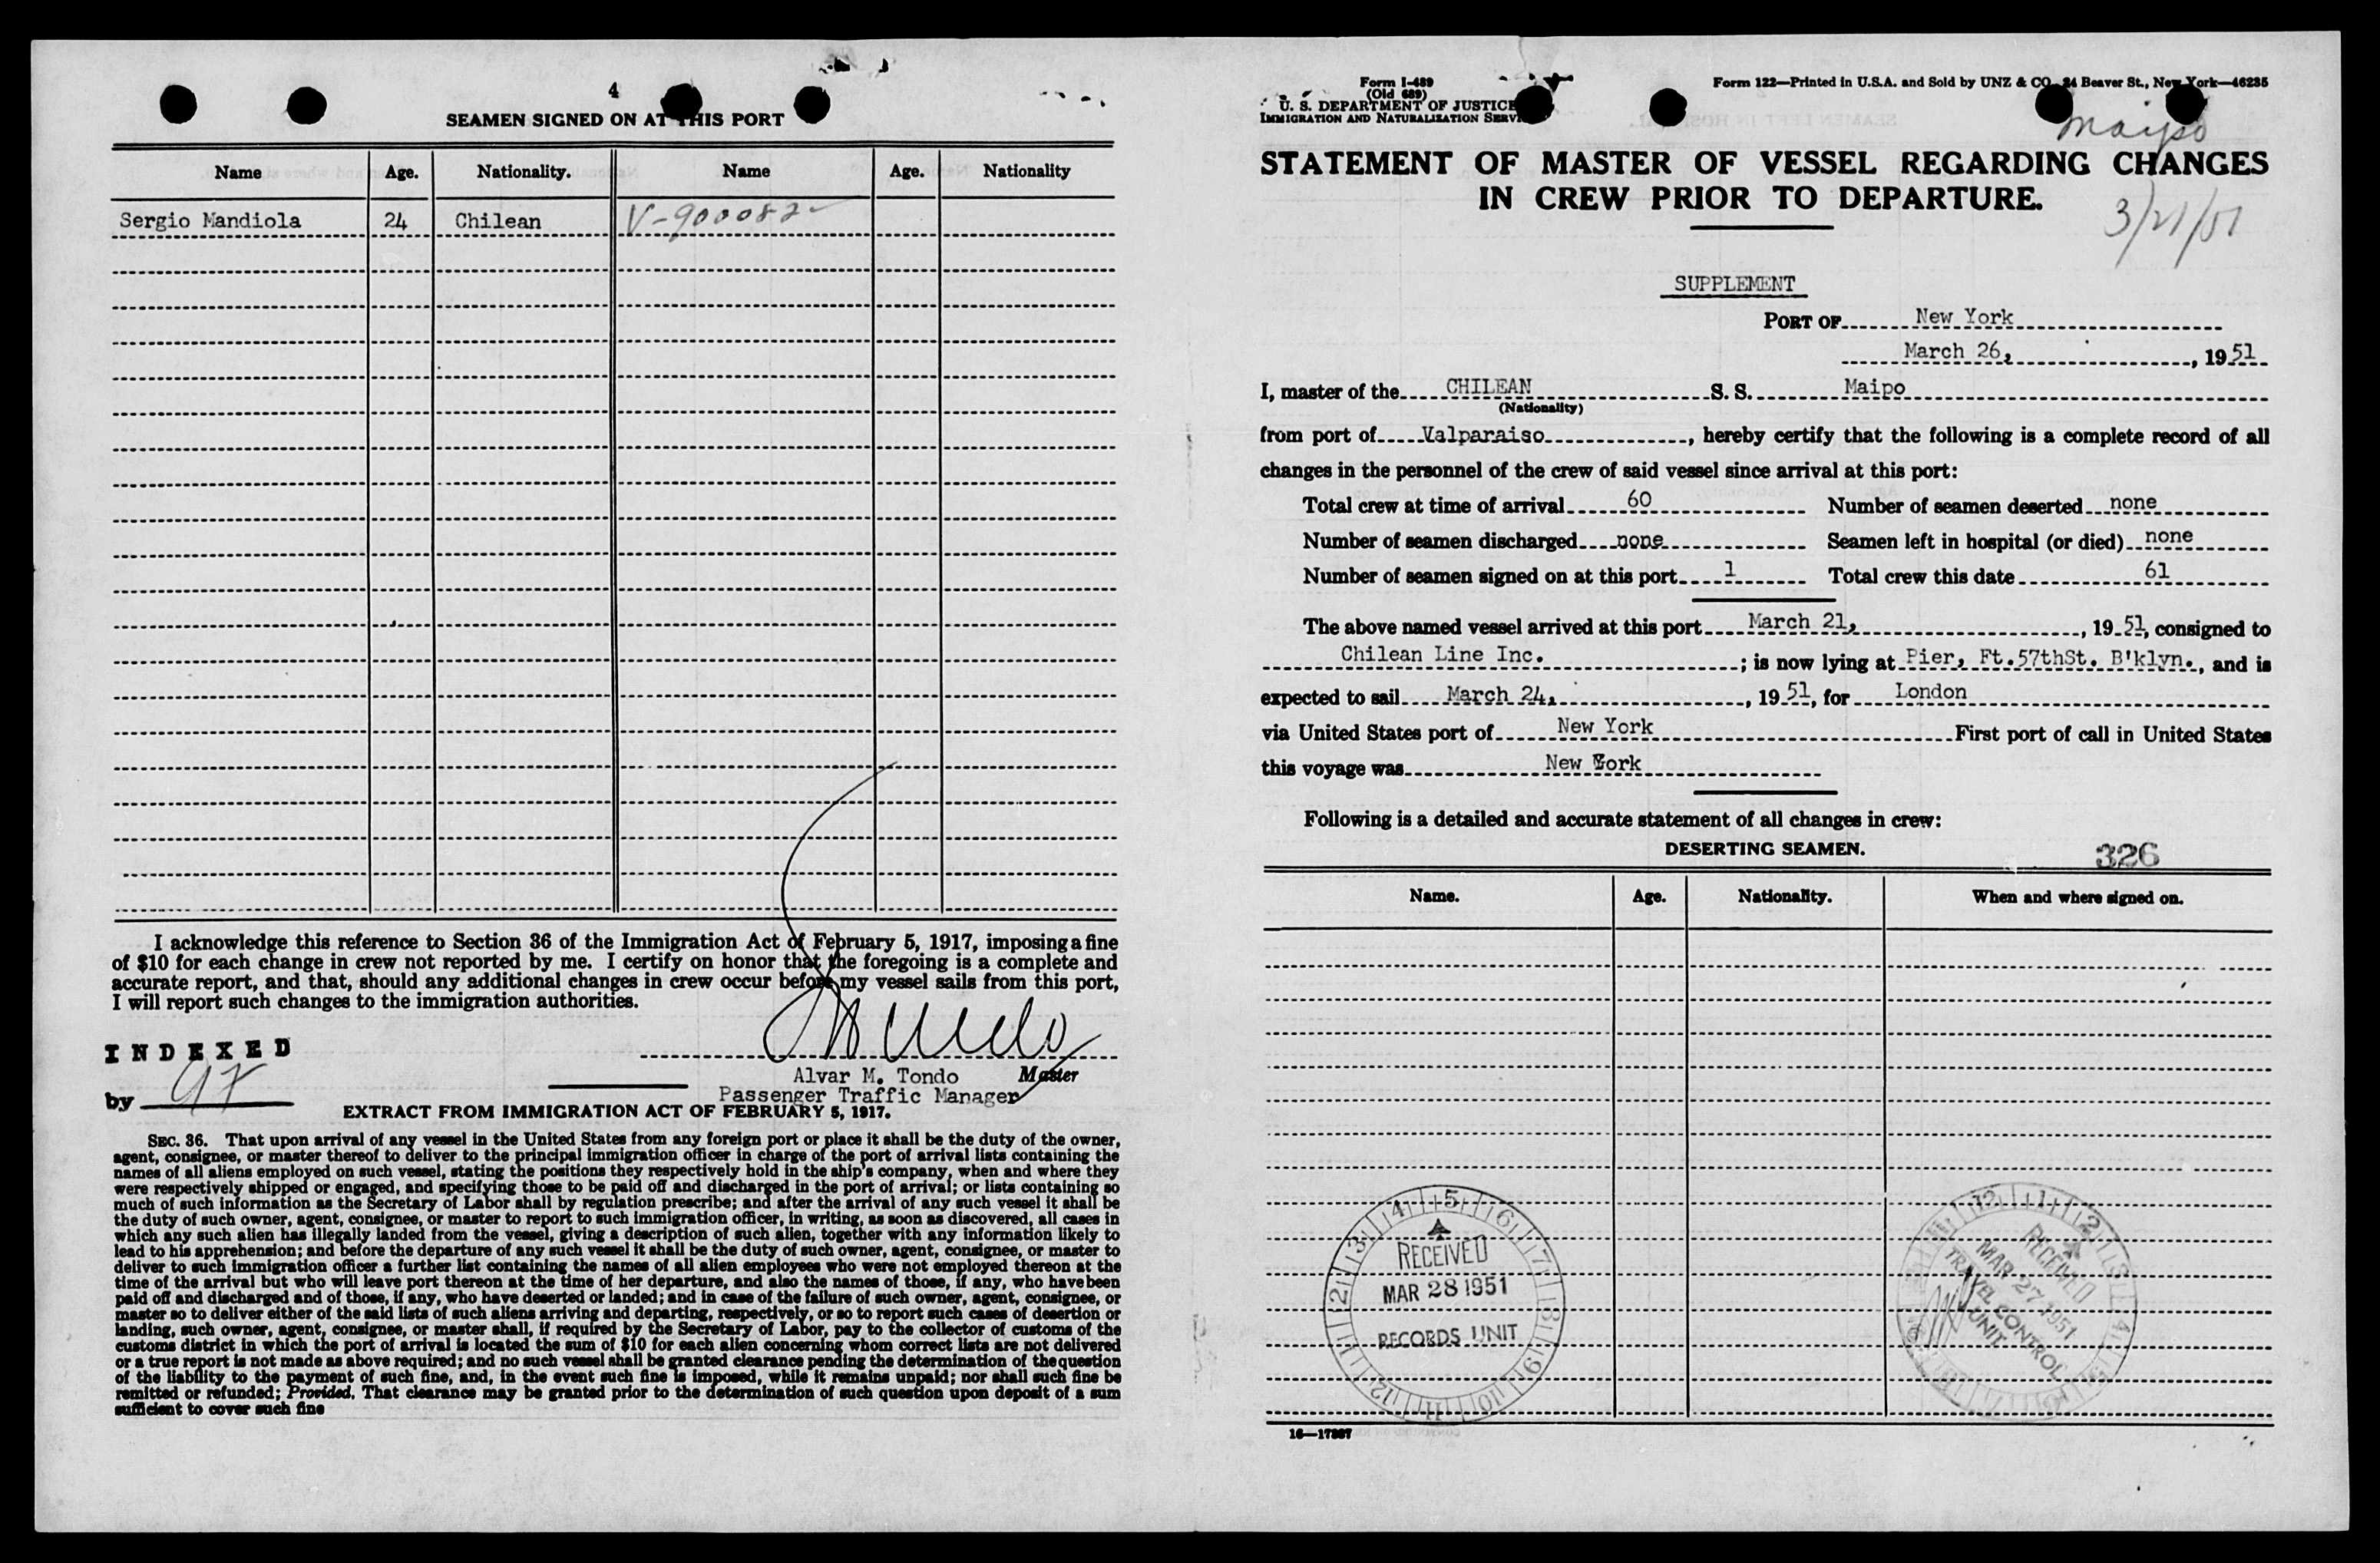 4
SEAMEN SIGNED ON AT THIS PORT
Name Age. Nationality. Name Age. Nationality
Sergio Mandiola 24 Chilean V-900082
I acknowledge this reference to Section 36 of the Immigration Act of February 5, 1917, imposing a fine
of $10 for each change in crew not reported by me. I certify on honor that the foregoing is a complete and
accurate report, and that, should any additional changes in crew occur before my vessel sails from this port,
I will report such changes to the immigration authorities.
INDEXED
by
Alvar M. Tondo Master
Passenger Traffic Manager
EXTRACT FROM IMMIGRATION ACT OF FEBRUARY 5, 1917.
SEC. 36. That upon arrival of any vessel in the United States from any foreign port or place it shall be the duty of the owner,
agent, consignee, or master thereof to deliver to the principal immigration officer in charge of the port of arrival lists containing the
names of all aliens employed on such vessel, stating the positions they respectively hold in the ship's company, when and where they
were respectively shipped or engaged, and specifying those to be paid off and discharged in the port of arrival; or lists containing so
much of such information as the Secretary of Labor shall by regulation prescribe; and after the arrival of any such vessel it shall be
the duty of such owner, agent, consignee, or master to report to such immigration officer, in writing, as soon as discovered, all cases in
which any such alien has illegally landed from the vessel, giving a description of such alien, together with any information likely to
lead to his apprehension; and before the departure of any such vessel it shall be the duty of such owner, agent, consignee, or master to
deliver to such immigration officer a further list containing the names of all alien employees who were not employed thereon at the
time of the arrival but who will leave port thereon at the time of her departure, and also the names of those, if any, who have been
paid off and discharged and of those, if any, who have deserted or landed; and in case of the failure of such owner, agent, consignee, or
master so to deliver either of the said lists of such aliens arriving and departing, respectively, or so to report such cases of desertion or
landing, such owner, agent, consignee, or master shall, if required by the Secretary of Labor, pay to the collector of customs of the
customs district in which the port of arrival is located the sum of $10 for each alien concerning whom correct lists are not delivered
or a true report is not made as above required; and no such vessel shall be granted clearance pending the determination of the question
of the liability to the payment of such fine, and, in the event such fine is imposed, while it remains unpaid; nor shall such fine be
remitted or refunded; Provided, That clearance may be granted prior to the determination of such question upon deposit of a sum
sufficient to cover such fine
Form I-489
(Old 689)
U. S. DEPARTMENT OF JUSTICE
IMMIGRATION AND NATURALIZATION SERVI
Form 122—Printed in U.S.A. and Sold by UNZ & CO. 24 Beaver St., New York—46235
Maipo
STATEMENT OF MASTER OF VESSEL REGARDING CHANGES
IN CREW PRIOR TO DEPARTURE.
3/21/51
SUPPLEMENT
PORT OF New York
March 26, , 1951
I, master of the CHILEAN S. S. Maipo
(Nationality)
from port of Valparaiso, hereby certify that the following is a complete record of all
changes in the personnel of the crew of said vessel since arrival at this port:
Total crew at time of arrival 60 Number of seamen deserted none
Number of seamen discharged none Seamen left in hospital (or died) none
Number of seamen signed on at this port 1 Total crew this date 61
The above named vessel arrived at this port March 21, , 1951, consigned to
Chilean Line Inc. ; is now lying at Pier, Ft.57thSt. B'klyn., and is
expected to sail March 24, , 1951, for London
via United States port of New York First port of call in United States
this voyage was New York
Following is a detailed and accurate statement of all changes in crew:
DESERTING SEAMEN.
326
Name. Age. Nationality. When and where signed on.
RECEIVED
MAR 28 1951
RECORDS UNIT
RECEIVED
MAR 27 1951
TRAVEL CONTROL
UNIT
16—17887